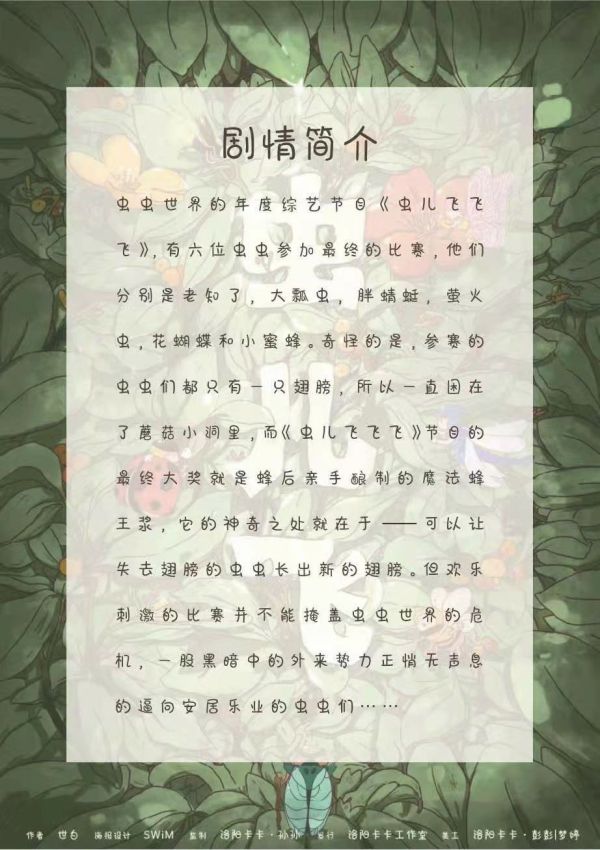 剧情简介
虫虫世界的年度综艺节目《虫儿飞飞
飞》,有六位虫虫参加最终的比赛,他们
分别是老知了,大瓢虫,胖蜻蜓,萤火
虫,花蝴蝶和小蜜蜂。奇怪的是,参赛的
虫虫们都只有一只翅膀,所以一直困在
了蘑菇小洞里,而《虫儿飞飞飞》节目的
最终大奖就是蜂后亲手酿制的魔法蜂
王浆,它的神奇之处就在于——可以让
失去翅膀的虫虫长出新的翅膀。但欢乐
刺激的比赛并不能掩盖虫虫世界的危
机,一股黑暗中的外来势力正悄无声息
的逼向安居乐业的虫虫们……
虫儿飞
作者 世白 海报设计 SWiM 监制 洛阳卡卡·孙孙 发行 洛阳卡卡工作室 美工 洛阳卡卡·彭彭|梦婷